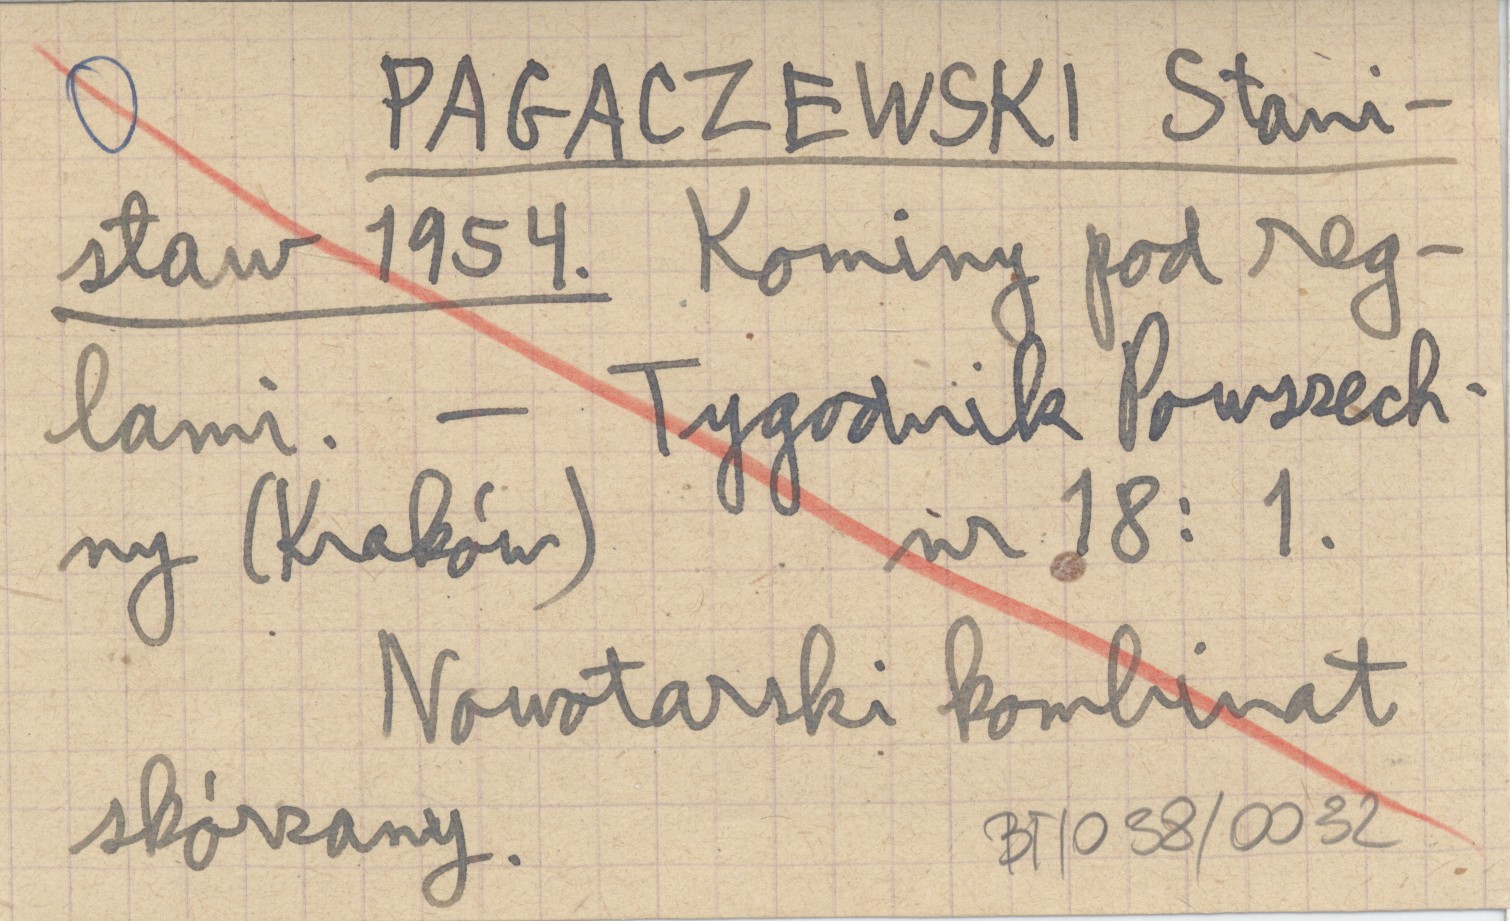 PAGACZEWSKI Stani-
sław 1954. Kominy pod reg-
lami. — Tygodnik Powszech-
ny (Kraków) nr 18: 1.
Nowotarski kombinat
skórzany.
BT/038/0032